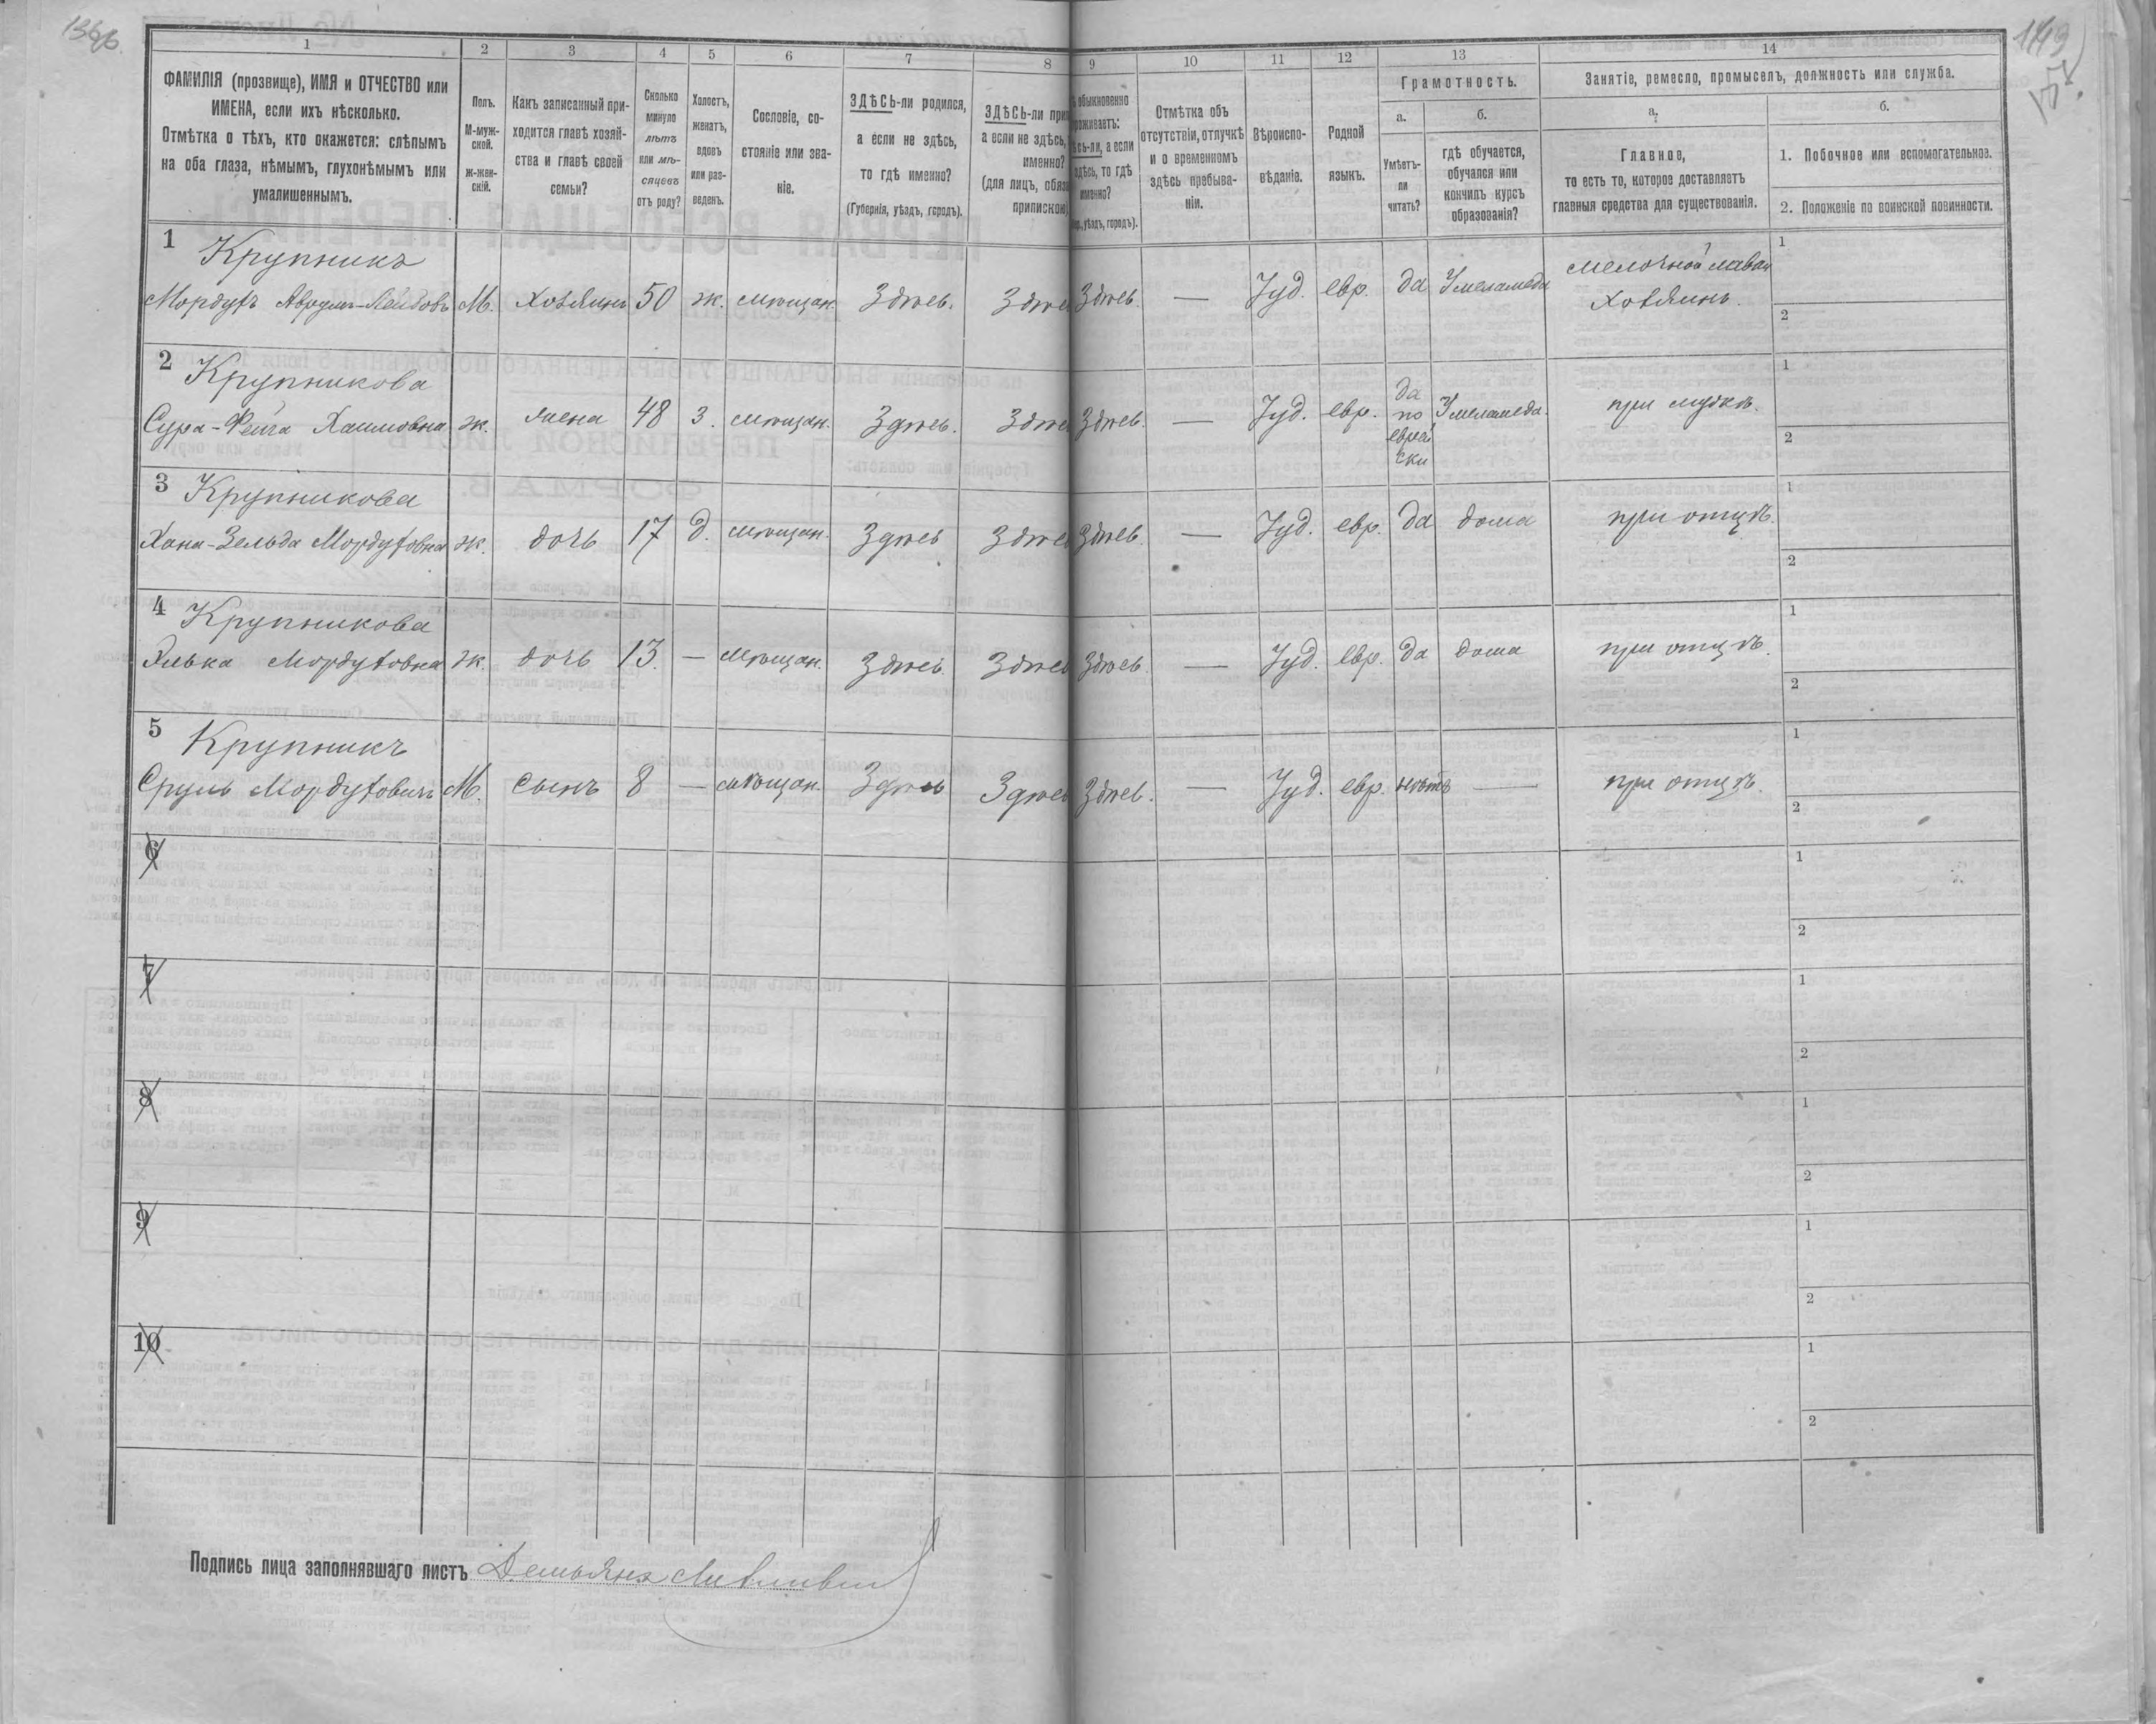 136об.
149
1 2 3 4 5 6 7 8 9 10 11 12 13 14
ФАМИЛІЯ (прозвище), ИМЯ и ОТЧЕСТВО или
ИМЕНА, если ихъ нѣсколько.
Отмѣтка о тѣхъ, кто окажется: слѣпымъ
на оба глаза, нѣмымъ, глухонѣмымъ или
умалишеннымъ.
Полъ.
М-муж-
ской.
Ж-жен-
скій.
Какъ записанный при-
ходится главѣ хозяй-
ства и главѣ своей
семьи?
Сколько
минуло
лѣтъ
или мѣ-
сяцевъ
отъ роду?
Холостъ,
женатъ,
вдовъ
или раз-
веденъ.
Сословіе, со-
стояніе или зва-
ніе.
ЗДѢСЬ-ли родился,
а если не здѣсь,
то гдѣ именно?
(Губернія, уѣздъ, городъ).
ЗДѢСЬ-ли при
а если не здѣсь,
именно?
(для лицъ, обяз
припискою)
обыкновенно
роживаетъ:
сь-ли, а если
здѣсь, то гдѣ
именно?
уѣздъ, городъ).
Отмѣтка объ
отсутствіи, отлучкѣ
и о временномъ
здѣсь пребыва-
ніи.
Вѣроиспо-
вѣданіе.
Родной
языкъ.
Грамотность.
а.
Умѣетъ-
ли
читать?
б.
гдѣ обучается,
обучался или
кончилъ курсъ
образованія?
Занятіе, ремесло, промыселъ, должность или служба.
а.
Главное,
то есть то, которое доставляетъ
главныя средства для существованія.
б.
1. Побочное или вспомогательное.
2. Положеніе по воинской повинности.
1 Крупникъ мелочной лавки 1
Мордухъ Аврумъ-Лейбовъ М. Хозяинъ 50 ж. мѣщан. Здѣсь. Здѣсь Здѣсь. — Іуд. евр. да У меламеда Хозяинъ. 2
2 Крупникова 1
Сура-Фейга Хаимовна ж. жена 48 з. мѣщан. Здѣсь. Здѣсь Здѣсь. — Іуд. евр. да по еврейски У меламеда. при мужѣ. 2
3 Крупникова 1
Хана-Зельда Мордуховна ж. дочь 17 д. мѣщан. Здѣсь Здѣсь Здѣсь. — Іуд. евр. да дома при отцѣ. 2
4 Крупникова 1
Элька Мордуховна ж. дочь 13. — мѣщан. Здѣсь. Здѣсь Здѣсь. — Іуд. евр. да дома при отцѣ. 2
5 Крупникъ 1
Сруль Мордуховичъ М. сынъ 8 — мѣщан. Здѣсь Здѣсь Здѣсь. — Іуд. евр. нѣтъ — при отцѣ. 2
6 1
2
7 1
2
8 1
2
9 1
2
10 1
2
Подпись лица заполнявшаго листъ Демьянъ